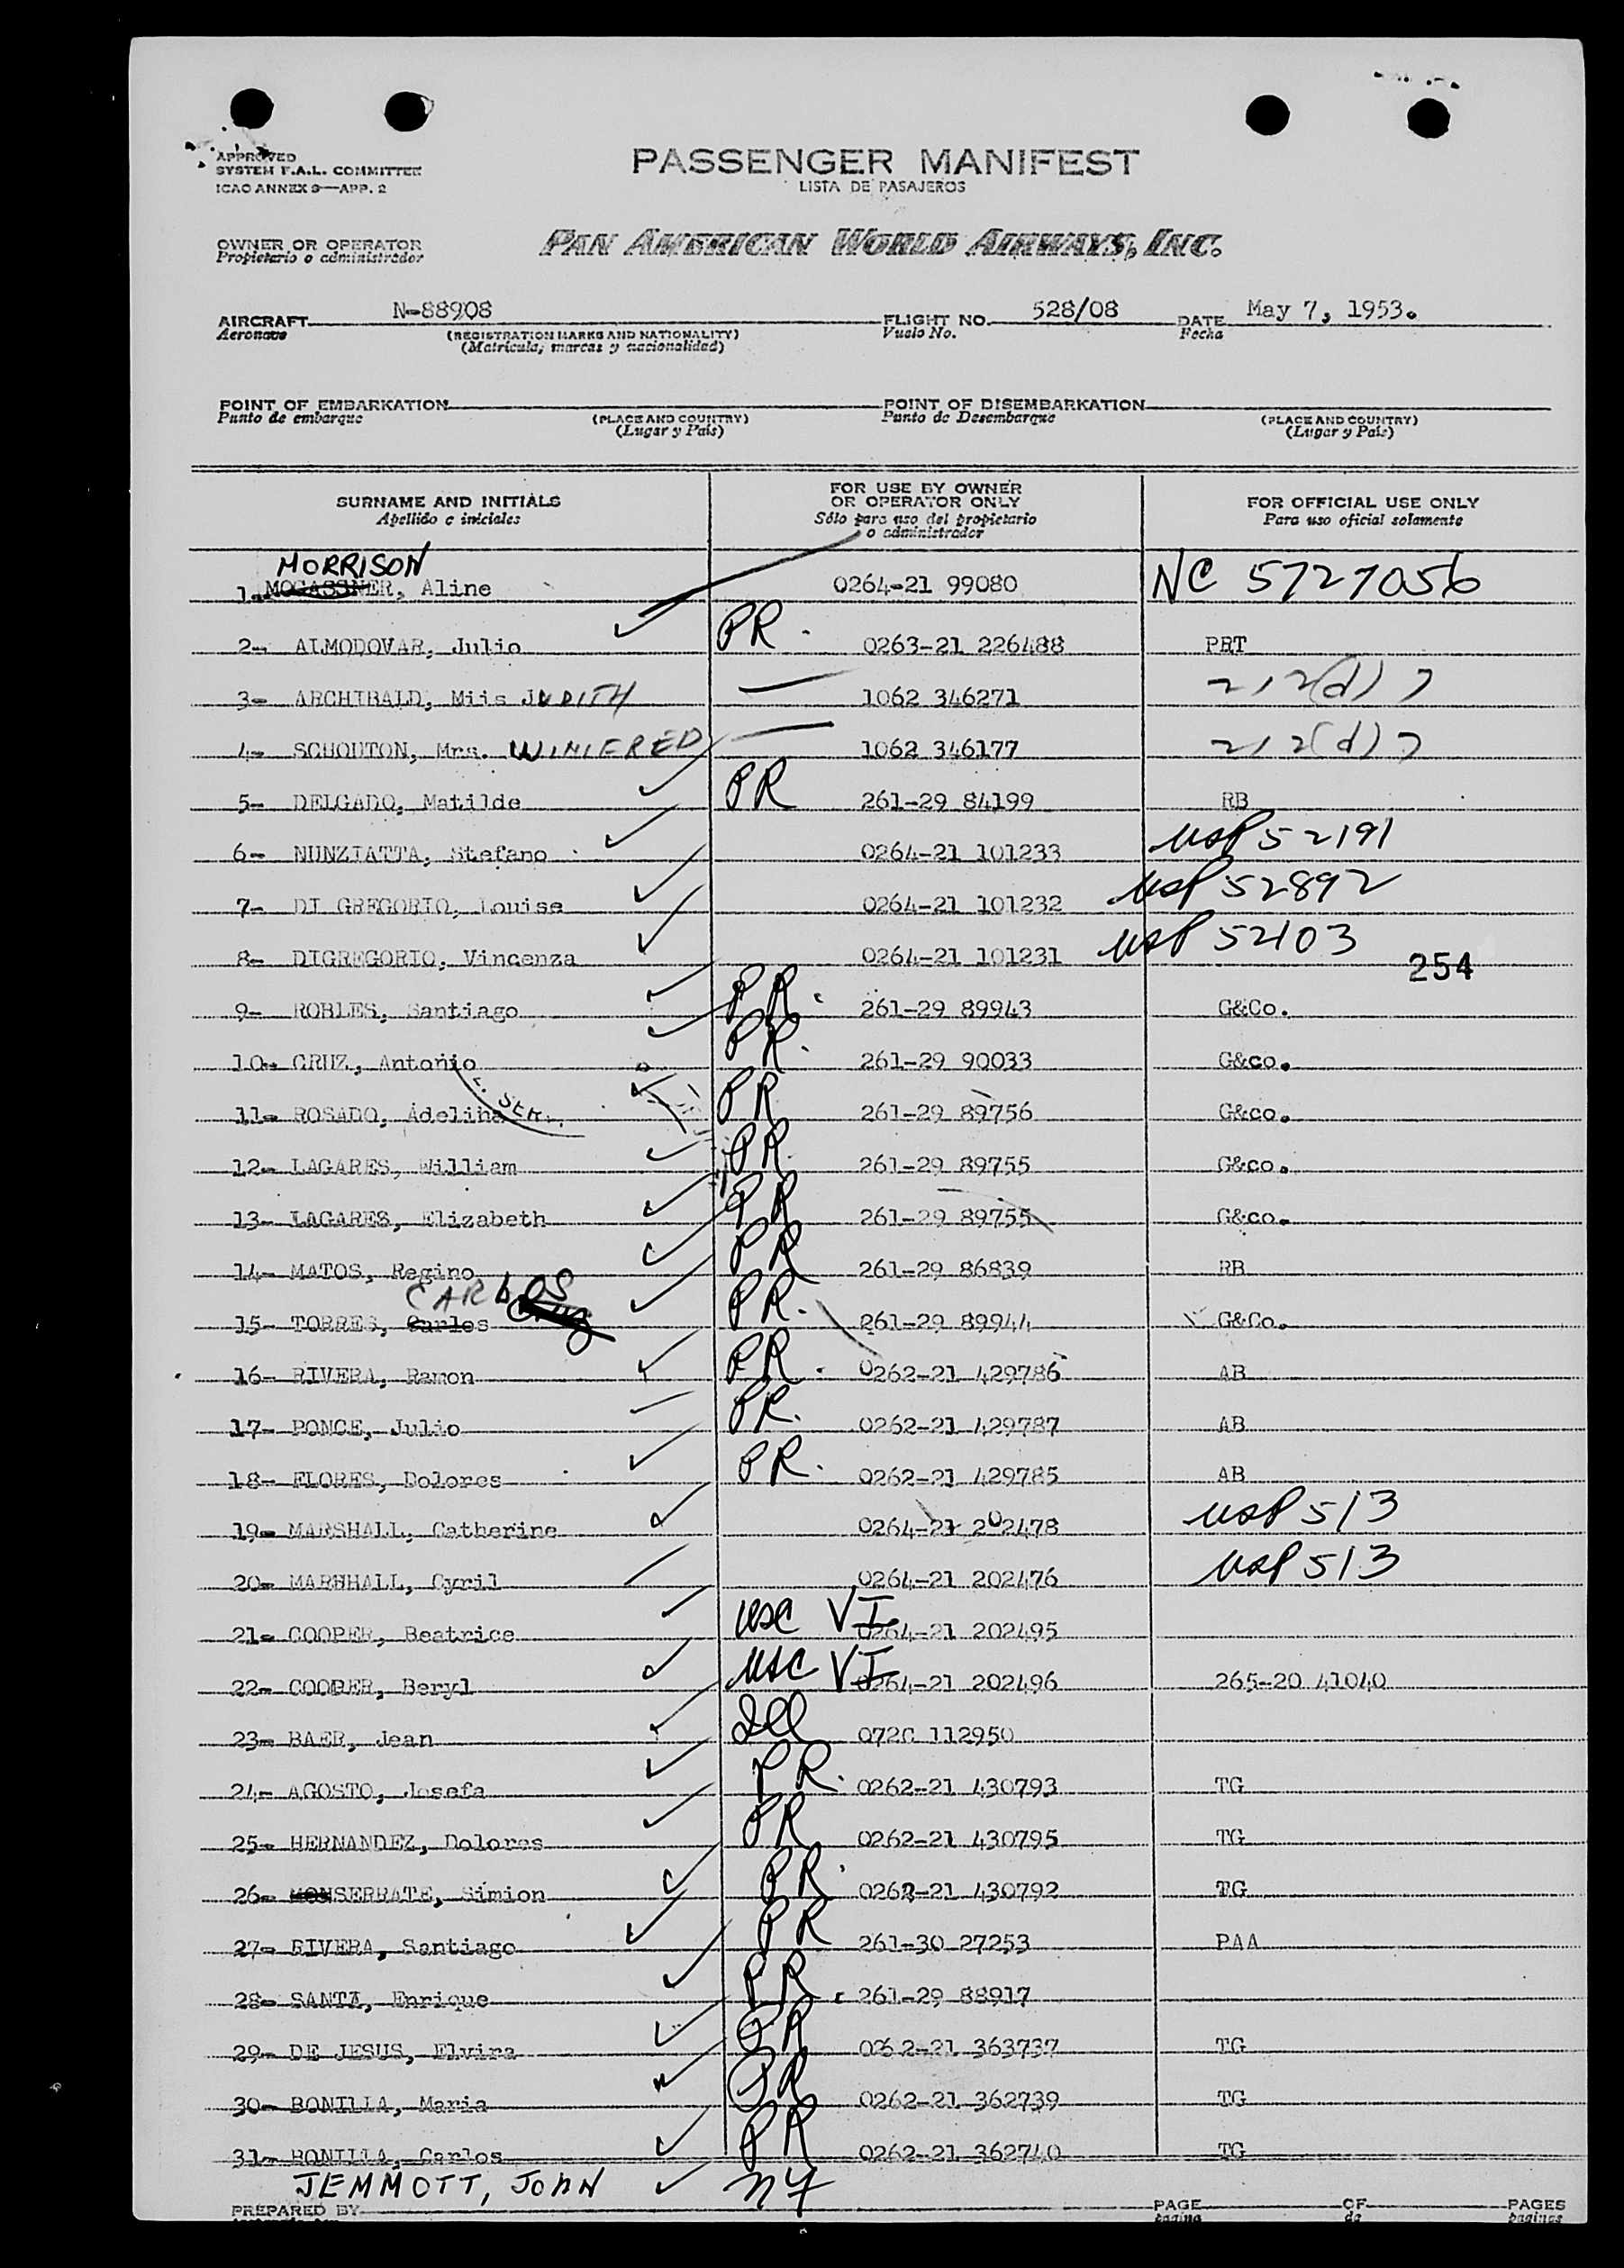 APPROVED
SYSTEM F.A.L. COMMITTEE
ICAO ANNEX 9—APP. 2
PASSENGER MANIFEST
LISTA DE PASAJEROS
OWNER OR OPERATOR
Propietario o administrador
PAN AMERICAN WORLD AIRWAYS, INC.
AIRCRAFT N-88908 FLIGHT NO. 528/08 DATE May 7, 1953.
Aeronave (REGISTRATION MARKS AND NATIONALITY) Vuelo No. Fecha
(Matricula, marcas y nacionalidad)
POINT OF EMBARKATION POINT OF DISEMBARKATION
Punto de embarque (PLACE AND COUNTRY) Punto de Desembarque (PLACE AND COUNTRY)
(Lugar y País) (Lugar y País)
SURNAME AND INITIALS FOR USE BY OWNER OR OPERATOR ONLY FOR OFFICIAL USE ONLY
Apellido e iniciales Sólo para uso del propietario o administrador Para uso oficial solamente
MORRISON
1. MOGASSNER, Aline 0264-21 99080 NC 5727056
2- ALMODOVAR, Julio PR. 0263-21 226488 PRT
3- ARCHIBALD, Miis JUDITH 1062 346271 212(d)7
4- SCHOUTON, Mrs. WINIFRED 1062 346177 212(d)7
5- DELGADO, Matilde PR 261-29 84199 RB
6- NUNZIATTA, Stefano 0264-21 101233 USP 52191
7- DI GREGORIO, Louise 0264-21 101232 USP 52892
8- DIGREGORIO, Vincenza 0264-21 101231 USP 52103
254
9- ROBLES, Santiago PR. 261-29 89943 G&Co.
10- CRUZ, Antonio PR. 261-29 90033 G&co.
11- ROSADO, Adelina PR 261-29 89756 G&co.
12- LAGARES, William PR. 261-29 89755 G&co.
13- LAGARES, Elizabeth PR 261-29 89755 G&co.
14- MATOS, Regino PR 261-29 86839 RB
CARLOS
15- TORRES, Carlos Cruz PR. 261-29 89944 G&Co.
16- RIVERA, Ramon PR. 0262-21 429786 AB
17- PONCE, Julio PR. 0262-21 429787 AB
18- FLORES, Dolores PR. 0262-21 429785 AB
19- MARSHALL, Catherine 0264-21 202478 USP 513
20- MARSHALL, Cyril 0264-21 202476 USP 513
21- COOPER, Beatrice USC VI 0264-21 202495
22- COOPER, Beryl USC VI 0264-21 202496 265-20 41040
23- BAER, Jean Ill 072C 112950
24- AGOSTO, Josefa PR. 0262-21 430793 TG
25- HERNANDEZ, Dolores PR 0262-21 430795 TG
26- MONSERRATE, Simion PR. 0262-21 430792 TG
27- RIVERA, Santiago PR 261-30 27253 PAA
28- SANTA, Enrique PR 261-29 88917
29- DE JESUS, Elvira PR 0262-21 363737 TG
30- BONILLA, Maria PR 0262-21 362739 TG
31- BONILLA, Carlos PR 0262-21 362740 TG
JEMMOTT, JOHN NY
PREPARED BY PAGE OF PAGES
pagina de paginas